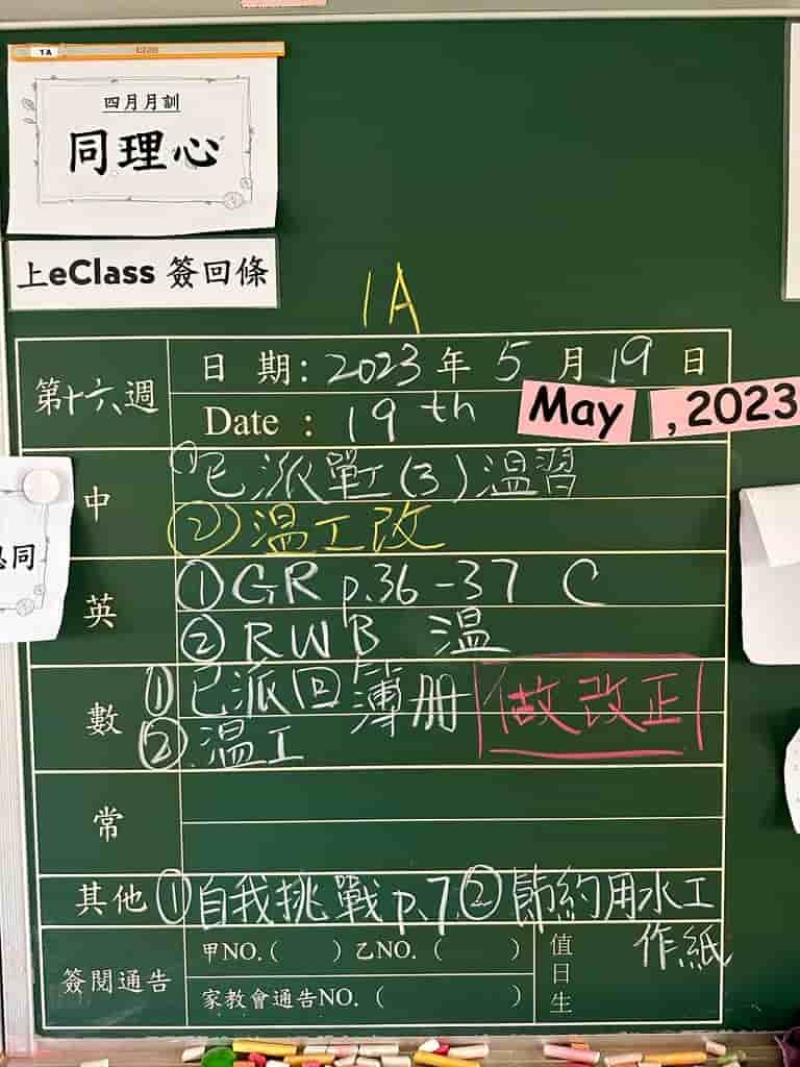 1A
四月月訓
同理心
上eClass 簽回條
1A
第十六週
日 期：2023年 5 月 19 日
Date : 19th May , 2023
中
①已派戰(3)溫習
②溫工改
英
①GR p.36-37 C
②RWB 溫
數
①已派回簿册 做改正
②溫工
常
其他 ①自我挑戰 p.7. ②節約用水工
作紙
簽閱通告
甲NO.( ) 乙NO.( )
家教會通告NO.( )
值日生
同